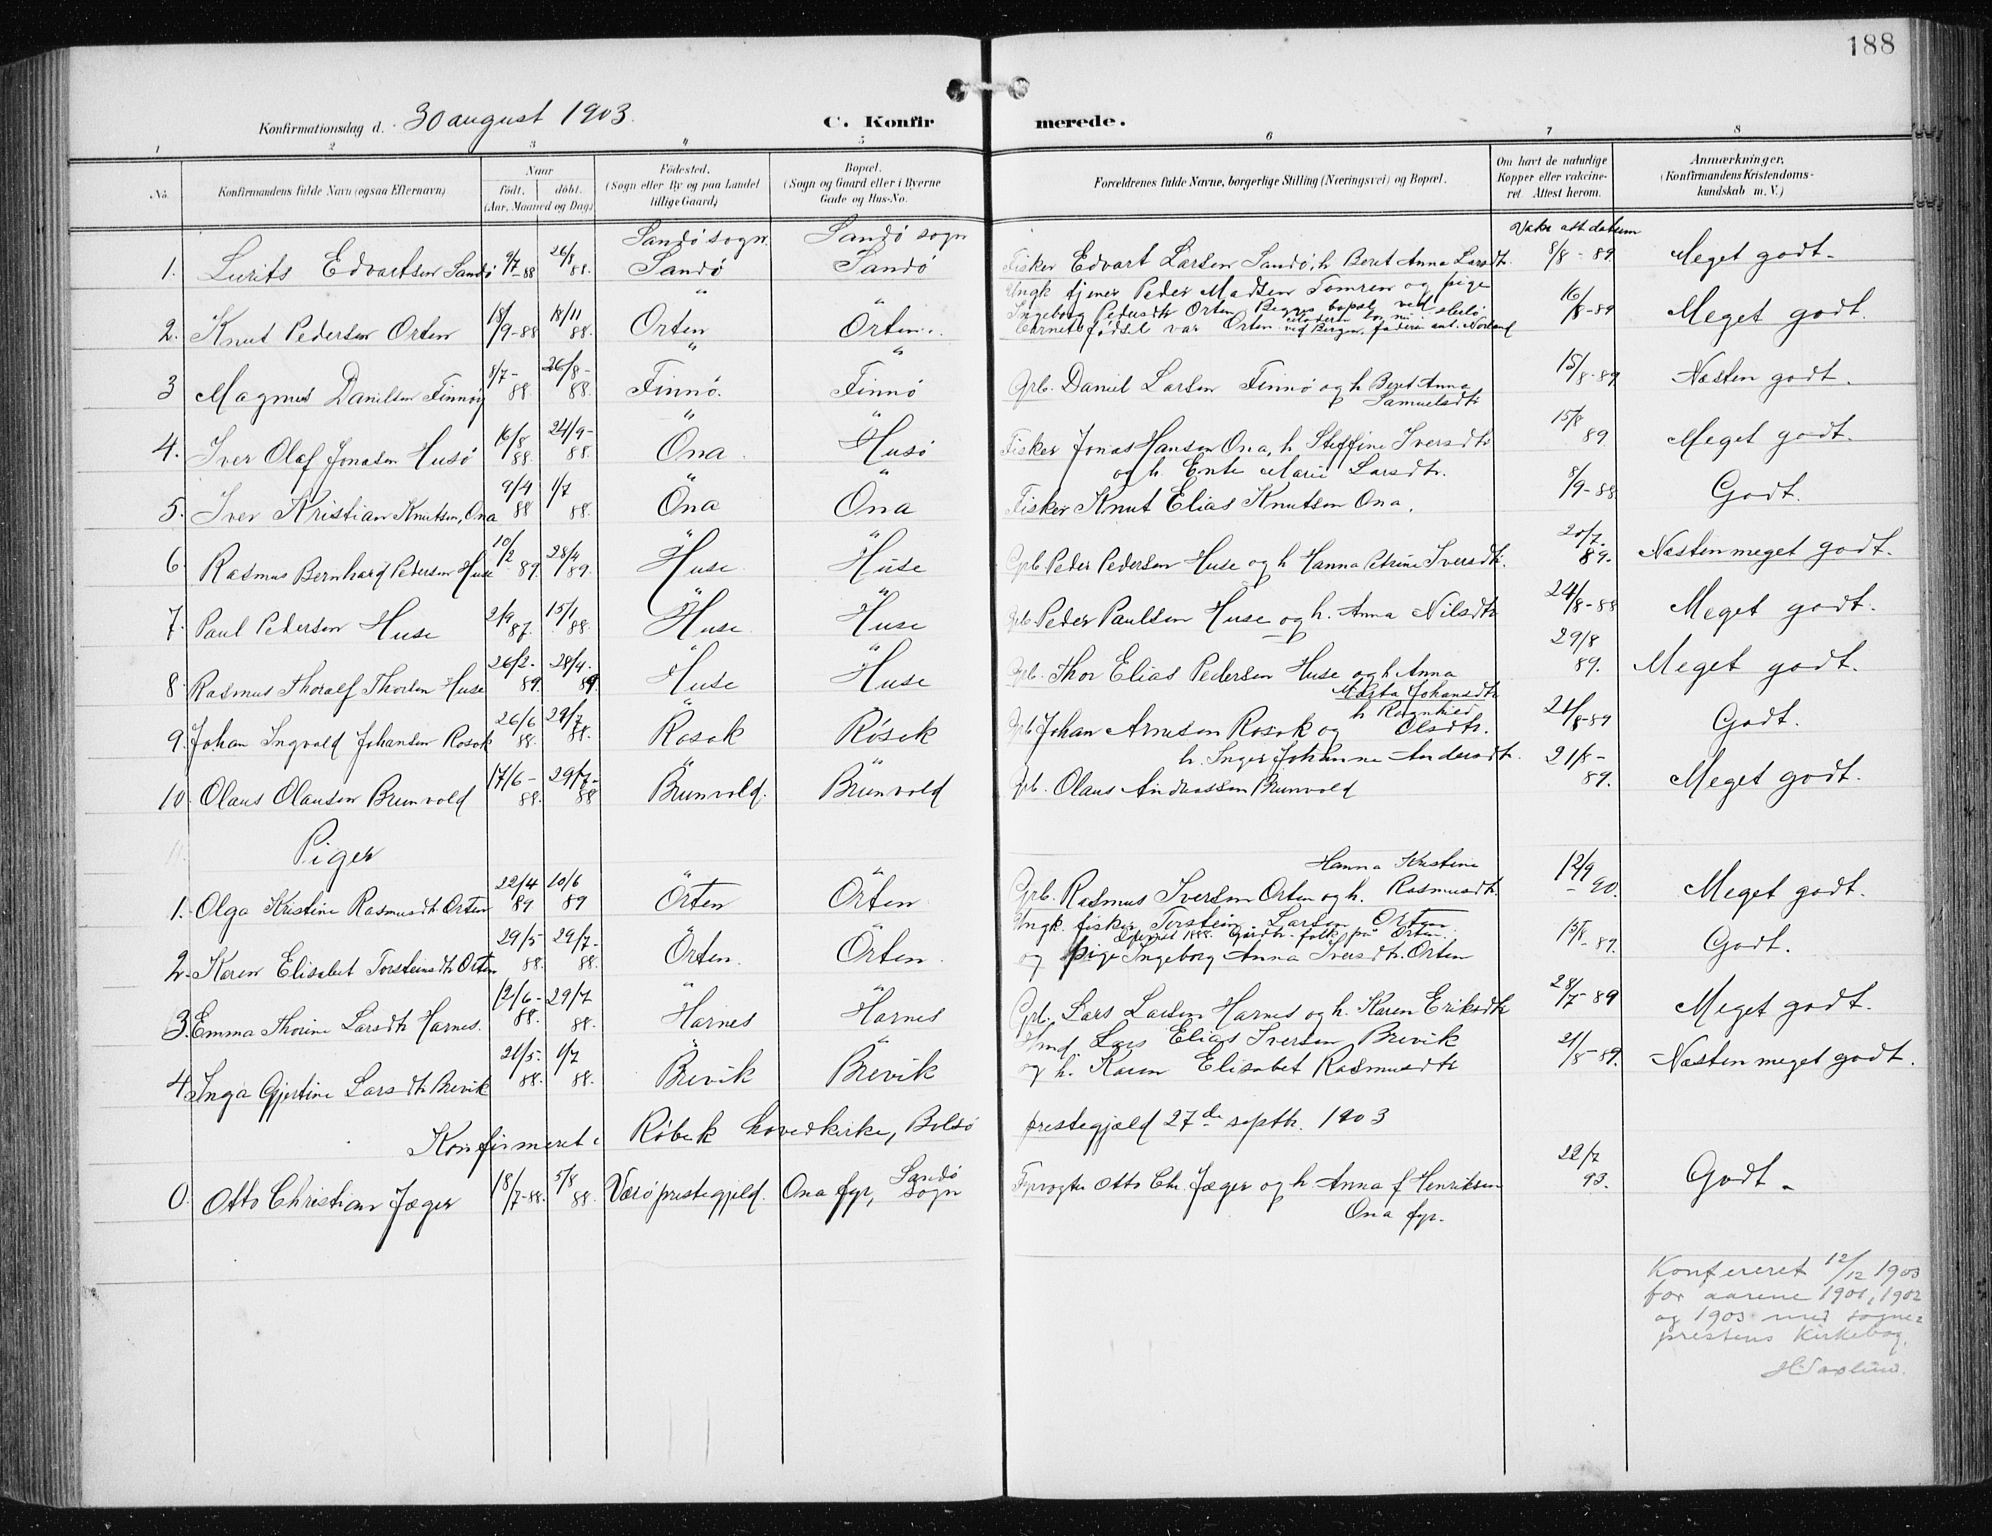 188
Konfirmationsdag d. 30 august 1903.
C. Konfirmerede.
1 2 3 4 5 6 7 8
No. Konfirmandens fulde Navn (ogsaa Efternavn) Naar födt. döbt. (Aar, Maaned og Dag) Födested. (Sogn eller By og paa Landet tillige Gaard) Bopæl. (Sogn og Gaard eller i Byerne Gade og Hus-No. Forældrenes fulde Navne, borgerlige Stilling (Næringsvei) og Bopæl. Om havt de naturlige Kopper eller vakcineret. Attest herom. Anmærkninger, (Konfirmandens Kristendomskundskab m. V.)
Sandö sogn Sandö sogn Vaks att datum
1. Lurits Edvartsen Sandö 9/7-88 26/8 88. Sandö Sandö Fisker Edvart Larsen Sandö, h. Beret Anna Larsdtr. 8/8-89 Meget godt.
2. Knut Pedersen Orten 18/9-88 18/11 88. Orten Orten. Ungk tjener Peder Madsen Tomren og pige
Ingeborg Pedersdtr Orten Begges bopæl ved
Barnets födsel var Orten 16/8-89 Meget godt.
3 Magnus Danielsen Finnöy 8/7-88 26/8-88. Finnö. Finnö Grb. Daniel Larsen Finnö og h Beret Anna Samuelsdtr 15/8-89 Næsten godt.
4. Iver Olaf Jonasen Husö 16/8 88. 24/9-88. Ona. Husö Fisker Jonas Hansen Ona, h. Steffine Iversdtr 15/8 89 Meget godt.
5. Iver Kristian Knutsen, Ona 9/4 88 1/7 88. Ona Ona og h. Ente Marie Larsdtr.
Fisker Knut Elias Knutsen Ona. 8/9-88 Godt.
6 Rasmus Bernhard Pedersen Huse 10/2 89. 28/4 89. Huse Huse Grb Peder Pedersen Huse og h Hanna Petrine Iversdtr. 20/7. 89. Næsten meget godt.
7. Paul Pedersen Huse 2/9 87. 15/1 88. Huse Huse Grb Peder Paulsen Huse og h. Anna Nilsdtr 24/8-88 Meget godt.
8. Rasmus Thoralf Thorsen Huse 26/2-89. 28/4-89. Huse Huse Grb. Thor Elias Pedersen Huse og h Anna Marta Johansdtr 29/8 89. Meget godt.
9. Johan Ingvald Johansen Rosok 26/6 88. 29/7 88. Rosok Rösok Grb Johan Arnesen Rosok og h Ragnhild Olsdtr. 21/8-89 Godt.
10. Olaus Olausen Brunvold 17/6-88. 29/7-88 Brunvold. Brunvold h. Inger Johanne Andersdtr.
Grb. Olaus Andreassen Brunvold 21/8-89. Meget godt.
Piger
1. Olga Kristine Rasmusdtr Orten 22/4 89 10/6 89 Orten Orten Grb. Rasmus Iversen Orten og h. Hanna Kristine Rasmusdtr. 12/9 90. Meget godt.
2. Karen Elisabet Torsteinsdtr Orten 29/5-88. 29/7-88. Orten. Orten. Ungk. fisker Torstein Larsen Orten
og pige Ingeborg Anna Iversdtr. Orten 15/8-89. Godt.
3. Emma Thorine Larsdtr Harnes. 12/6-88. 29/7 88. Harnes Harnes Grb. Lars Larsen Harnes og h. Karen Eriksdtr 28/7-89 Meget godt.
4. Inga Gjertine Larsdtr Brevik 21/5. 88. 1/7 88. Brevik Brevik Hmd Lars Elias Iversen Brevik
og h. Karen Elisabet Rasmusdtr 21/8-89. Næsten meget godt.
Konfirmeret i Röbek hovedkirke, Bolsö prestegjeld 27de septbr. 1903
0. Otto Christian Jæger 18/7-88. 5/8 88. Værö prestegjeld. Ona fyr, Sandö sogn Fyrvogter Otto Chr. Jæger og h Anna f Henriksen
Ona fyr. 22/7 93. Godt.
Konfereret 12/12 1903
for aarene 1901, 1902
og 1903 med sogne-
prestens Kirkebog.